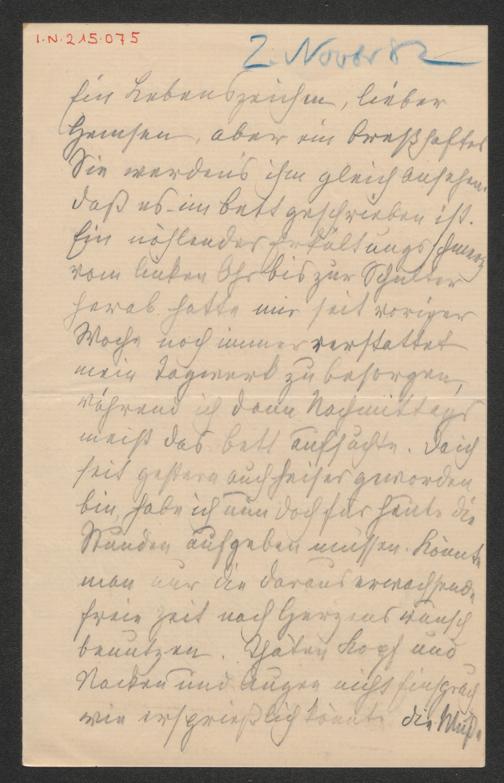 I.N. 215.075
2. Novbr 82
Ein Lebenszeichen, lieber
Hemsen, aber ein bresthaftes
Sie werden's ihm gleich ansehen,
daß es im Bett geschrieben ist.
Ein nöhlender Erkältungsschmerz
vom linken Ohr bis zur Schulter
herab hatte mir seit voriger
Woche noch immer verstattet
mein Tagwerk zu besorgen,
während ich dann Nachmittags
meist das Bett aufsuchte. Da ich
seit gestern auch heiser geworden
bin, habe ich nun doch für heute die
Stunden aufgeben müssen. Könnte
man nur die daraus erwachsende
freie Zeit nach Herzenswunsch
benutzen. Thäten Kopf und
Nacken und Augen nicht Einsprach
wie ersprießlich könnte die Muße